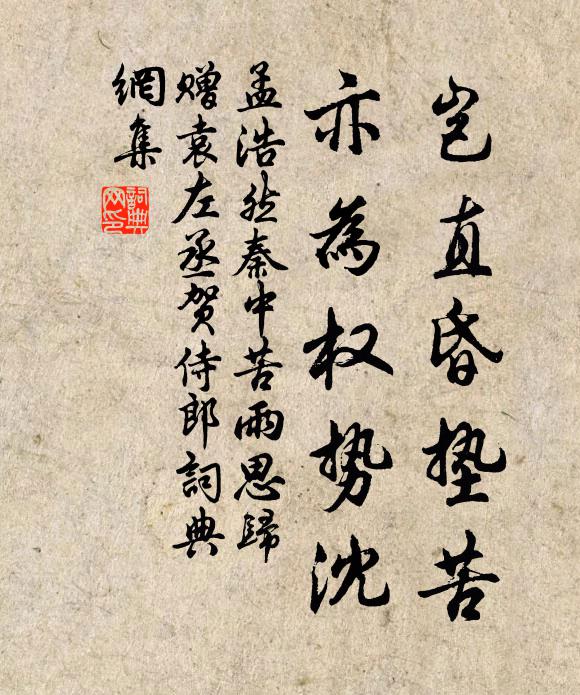 岂直昏垫苦
亦為权势沈
孟浩然秦中苦雨思歸
赠袁左丞贺侍郎詞典
網集
詞典網印